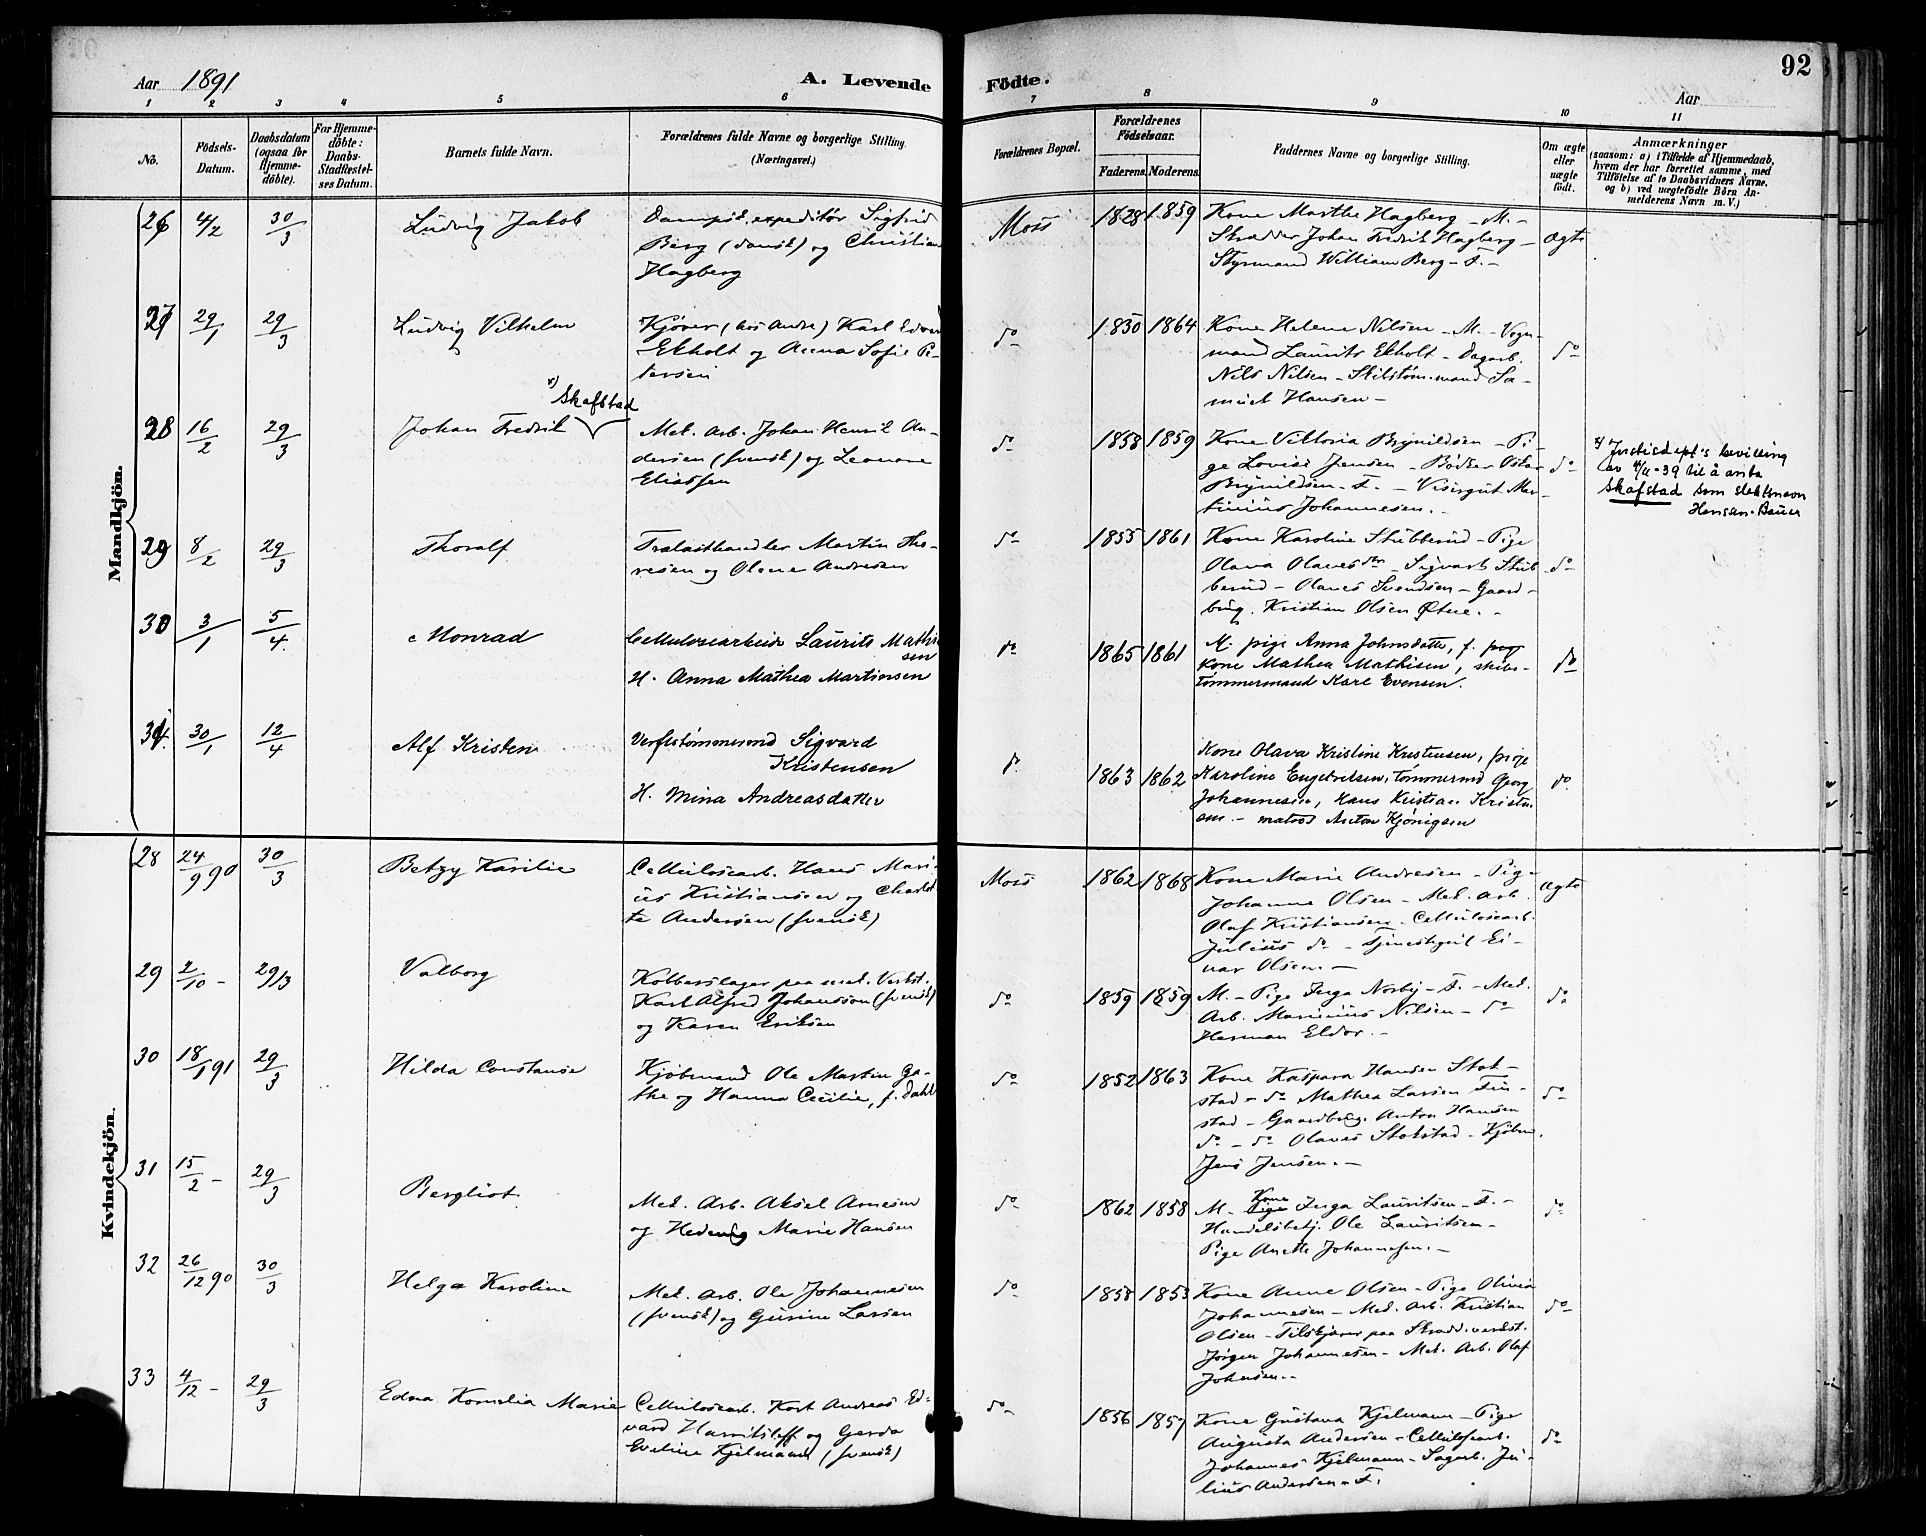 Aar 1891
A. Levende Födte.
92
Aar
1 2 3 4 5 6 7 8 9 10 11
No.
Födsels-Datum.
Daabsdatum (ogsaa for Hjemme-döbte).
For Hjemme-döbte: Daabs-Stadfæstel-ses Datum.
Barnets fulde Navn.
Forældrenes fulde Navne og borgerlige Stilling. (Næringsvei.)
Forældrenes Bopæl.
Forældrenes Födselsaar.
Faderens. Moderens.
Faddernes Navne og borgerlige Stilling.
Om ægte eller uægte födt.
Anmærkninger
(saasom: a) i Tilfælde af Hjemmedaab,
hvem der har forrettet samme, med
Tilföielse af to Daabsvidners Navne,
og b) ved uægtefödte Börn An-
melderens Navn m. V.)
Mandkjön.
26 4/2 30/3 Ludvig Jakob
Dampsk.expeditør Sigfrid
Berg (dansk) og Christian
Hagberg
Moss 1828 1859
Kone Marthe Hagberg - M. -
Skrædder Johan Fredrik Hagberg -
Styrmand William Berg - F. -
Ægte
27 29/1 29/3 Ludvig Vilhelm
Kjører (hos Andre) Karl Edvard
Ekholt og Anna Sofie Pe-
tersen
do 1830 1864
Kone Helene Nilsen - M. - Vogn-
mand Laurits Ekholt - Dagarb.
Nils Nilsen - Skibstøm.mand Sa-
muel Hansen -
do
x) Skafstad
28 16/2 29/3 Johan Fredrik
Mek. Arb. Johan Henrik An-
dersen (svensk) og Leonore
Eliassen
do 1858 1859
Kone Viktoria Brynildsen - Pi-
ge Lovise Jensen - Bødker Oskar
Brynildsen - F. - Visergut Mar-
tinius Johannesen. -
do
x) Justisdept's bevilling
av 4/11-39 til å anta
Skafstad som slektsnavn
Hanssen-Bauer
29 8/2 29/3 Thoralf
Trælasthandler Martin Tho-
resen og Olene Andresen
do 1855 1861
Kone Karoline Stubberud - Pige
Olava Olavesdtr - Sigvart Stub-
berud - Olaves Svendsen - Gaard-
brug. Kristian Olsen Østre. -
do
30 3/1 5/4 Monrad
Cellulosearbeider Laurits Mathi
sen
H. Anna Mathea Martinsen
do 1865 1861
M. pige Anna Johnsdatter, f.
Kone Mathea Mathisen, skibs-
tømmermand Karl Evensen.
do
31. 30/1 12/4 Alf Kristen
Verftstømmermd Sigvard
Kristensen
H. Mina Andreasdatter
do 1863 1862
Kone Olava Kristine Kristensen, pige
Karoline Engebretsen, Tømmermd Georg
Johannesen, Hans Kristian Kristen
sen. - matros Anton Kjønigsen
do.
Kvindekjön.
28 24/9 90 30/3 Betzy Karilie
Cellulosearb. Hans Mari-
us Kristiansen og Charlot
te Andersen (svensk)
Moss 1862 1868
Kone Marie Andresen - Pige
Johanne Olsen - Mek. Arb.
Olaf Kristiansen - Cellulosearb.
Julius do - Tjenestegut Ei-
nar Olsen. -
Ægte
29 2/10 - 29/3 Valborg
Kobberslager paa mek. Verkst.
Karl Alfred Johansson (svensk)
og Karen Eriksen
do 1859 1859
M. - Pige Inga Norby - F. - Mek.
Arb. Marinius Nilsen - do
Herman Eldor. -
do
30 18/1 91 29/3 Hilda Constanse
Kjøbmand Ole Martin Ga-
the og Hanna Cecilie, f. Dahl
do 1852 1863
Kone Kaspara Hansen Stok-
stad - do Mathea Larsen Fin-
stad - Gaardbrug. Anton Hansen
do - do Olaves Stokstad - Kjøbm.
Jens Jensen. -
do
31 15/2 - 29/3 Bergliot
Mek. Arb. Aksel Arnesen
og Hedevig Marie Hansen
do 1862 1858
M. - Kone Inga Lauritsen - F. -
Handelsbetj. Ole Lauritsen -
Pige Anette Johannesen. -
do
32 26/12 90 30/3 Helga Karoline
Mek. Arb. Ole Johannesen
(svensk) og Gurine Larsen
do 1858 1853
Kone Anne Olsen - Pige Olivia
Johannesen - Mek. Arb. Kristian
Olsen - Tilskjærer paa Skrædd.verkst.
Jørgen Johannesen - Mek. Arb. Olaf
Johnsen. -
do
33 4/12 - 29/3 Edna Kornelia Marie
Cellulosearb. Karl Andreas Ed-
vard Harnitsleff og Gerda
Eveline Kjelmann (svensk)
do 1856 1857
Kone Gustava Kjelmann - Pige
Augusta Andersen - Cellulosearb.
Johannes Kjelmann - Sagarb. Ju-
lius Andersen - F.
do